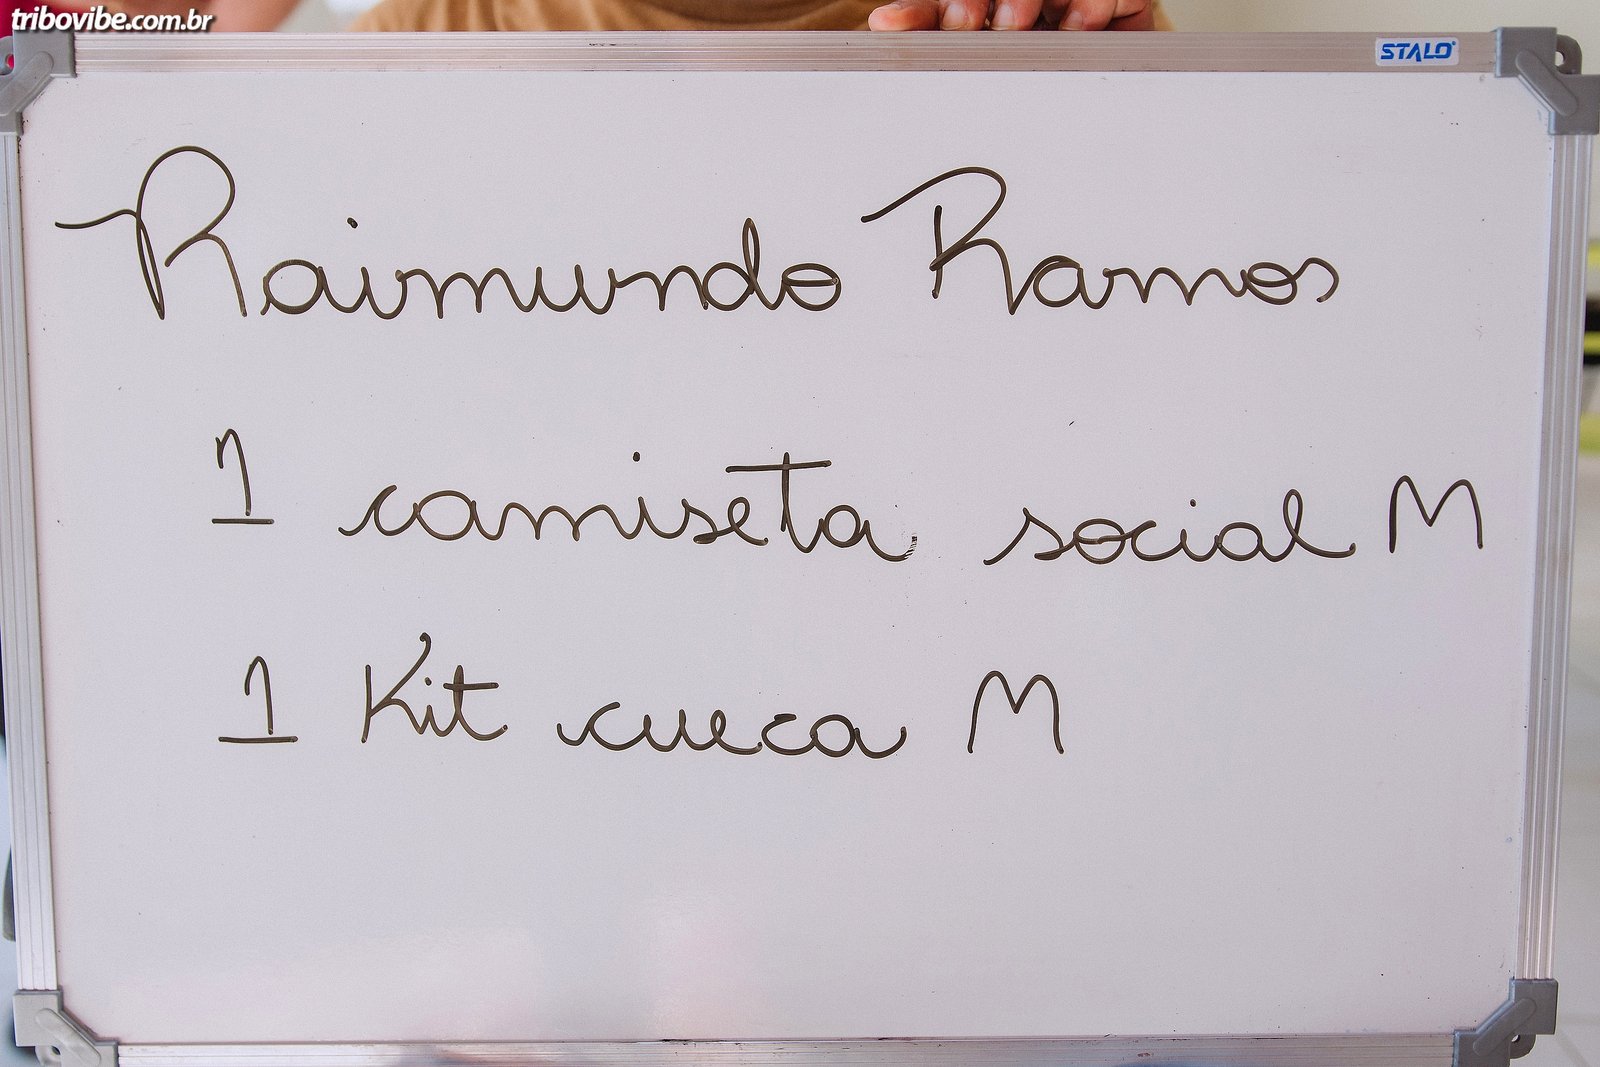 tribovibe.com.br
STALO
Raimundo Ramos
1 camiseta social M
1 Kit cueca M